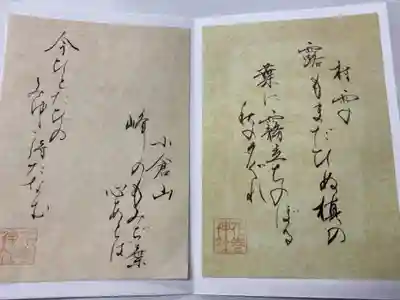 村雨の
露もまだひぬ槙の
葉に霧立ちのぼる
秋の夕ぐれ
小倉山
峰のもみぢ葉
心あらば
今ひとたびの
みゆき待たなむ